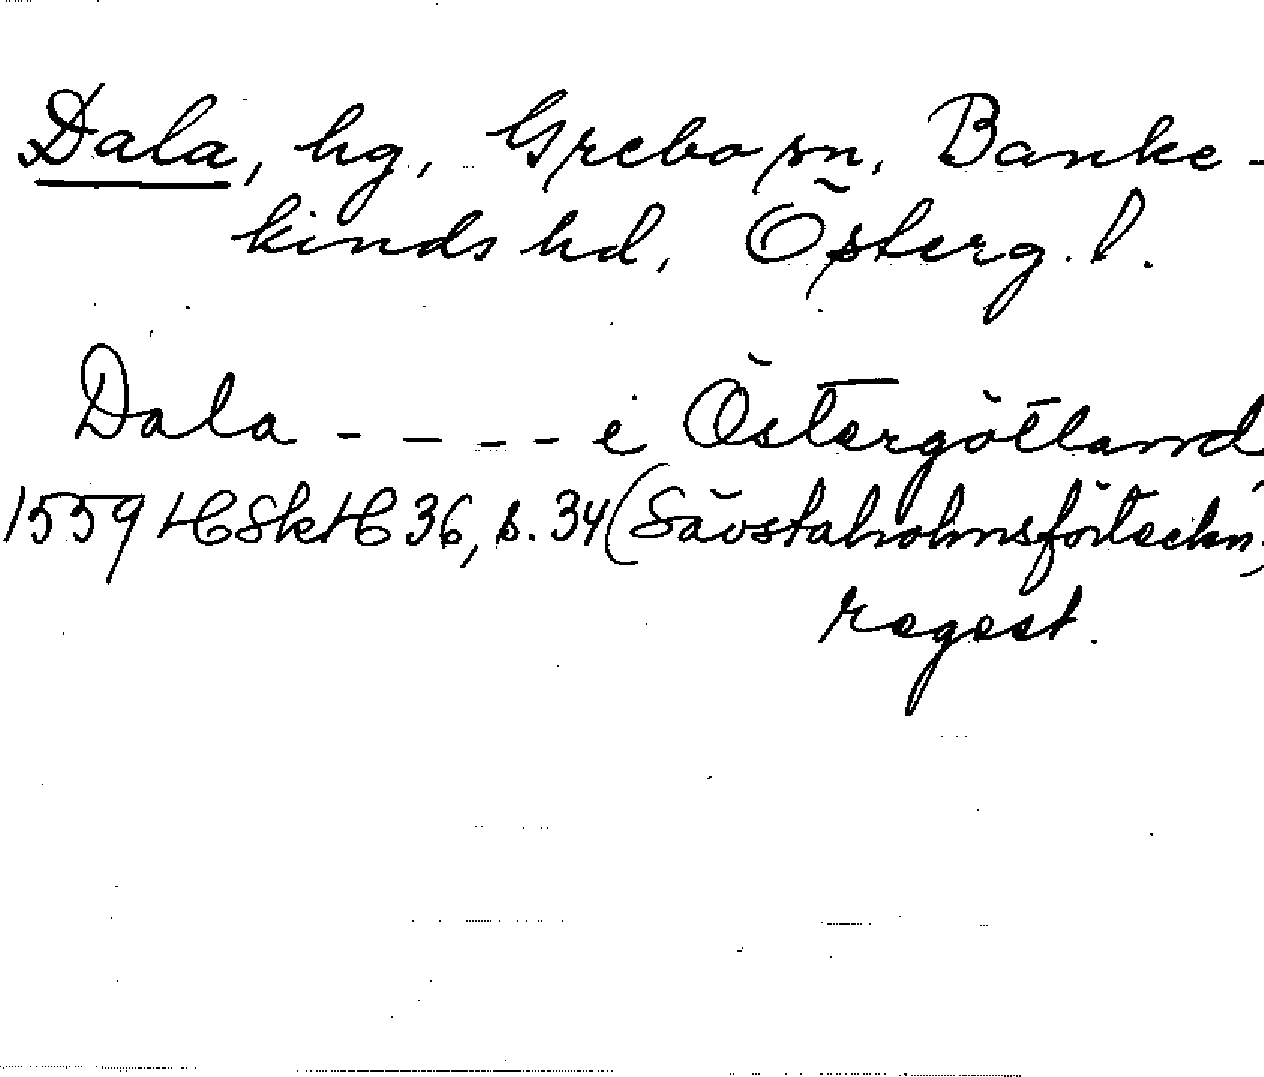 Dala, hg, Grebo sn, Banke-
kinds hd, Österg. l.
Dala - - - - i Östergötland
1559 HSkH 36, s. 34 (Sävstaholmsförteckn.,
regest.